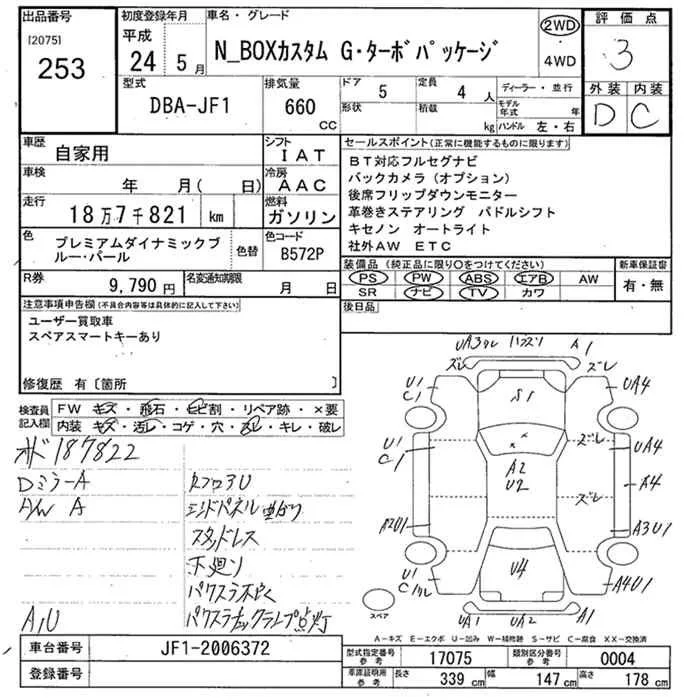 出品番号
[2075]
253
初度登録年月
平成
24 5月
車名・グレード
N_BOXカスタム G・ターボパッケージ
2WD
・
4WD
評価点
3
型式
DBA-JF1
排気量
660
CC
ドア
5
定員
4人
形状
積載
kg
ディーラー・並行
モデル年式 年
ハンドル 左・右
外装 内装
D C
車歴
自家用
シフト
IAT
車検
年 月( 日)
冷房
AAC
走行
18万7千821 km
燃料
ガソリン
色
プレミアムダイナミックブルー・パール
色替
色コード
B572P
R券
9,790円
名変通知期限
月 日
セールスポイント(正常に機能するものに限ります)
BT対応フルセグナビ
バックカメラ(オプション)
後席フリップダウンモニター
革巻きステアリング パドルシフト
キセノン オートライト
社外AW ETC
装備品(純正品に限り○をつけてください)
PS PW ABS エアB AW
SR ナビ TV カワ
新車保証書
有・無
後日品
注意事項申告欄(不具合内容等は具体的に記入して下さい)
ユーザー買取車
スペアスマートキーあり
修復歴 有〔箇所 〕
検査員記入欄
FW キズ・飛石・ヒビ割・リペア跡・×要
内装 キズ・汚レ・コゲ・穴・スレ・キレ・破レ
187822
DミラーA
AW A
エンドパネル曲がり
スタッドレス
下廻り
A,U
UA3
A1
ズレ
ズレ
U1
C1
S1
UA4
U1
C1
ズレ
UA4
A2
U2
A4
ズレ
A2U1
A3U1
U1
U4
A4U1
スペア
UA1
UA2
A1
A―キズ E―エクボ U―凹み W―補修跡 S―サビ C―腐食 XX―交換済
車台番号
JF1-2006372
登録番号
型式指定番号
参考
17075
類別区分番号
参考
0004
車庫証明用
参考
長さ
339 cm
幅
147 cm
高さ
178 cm